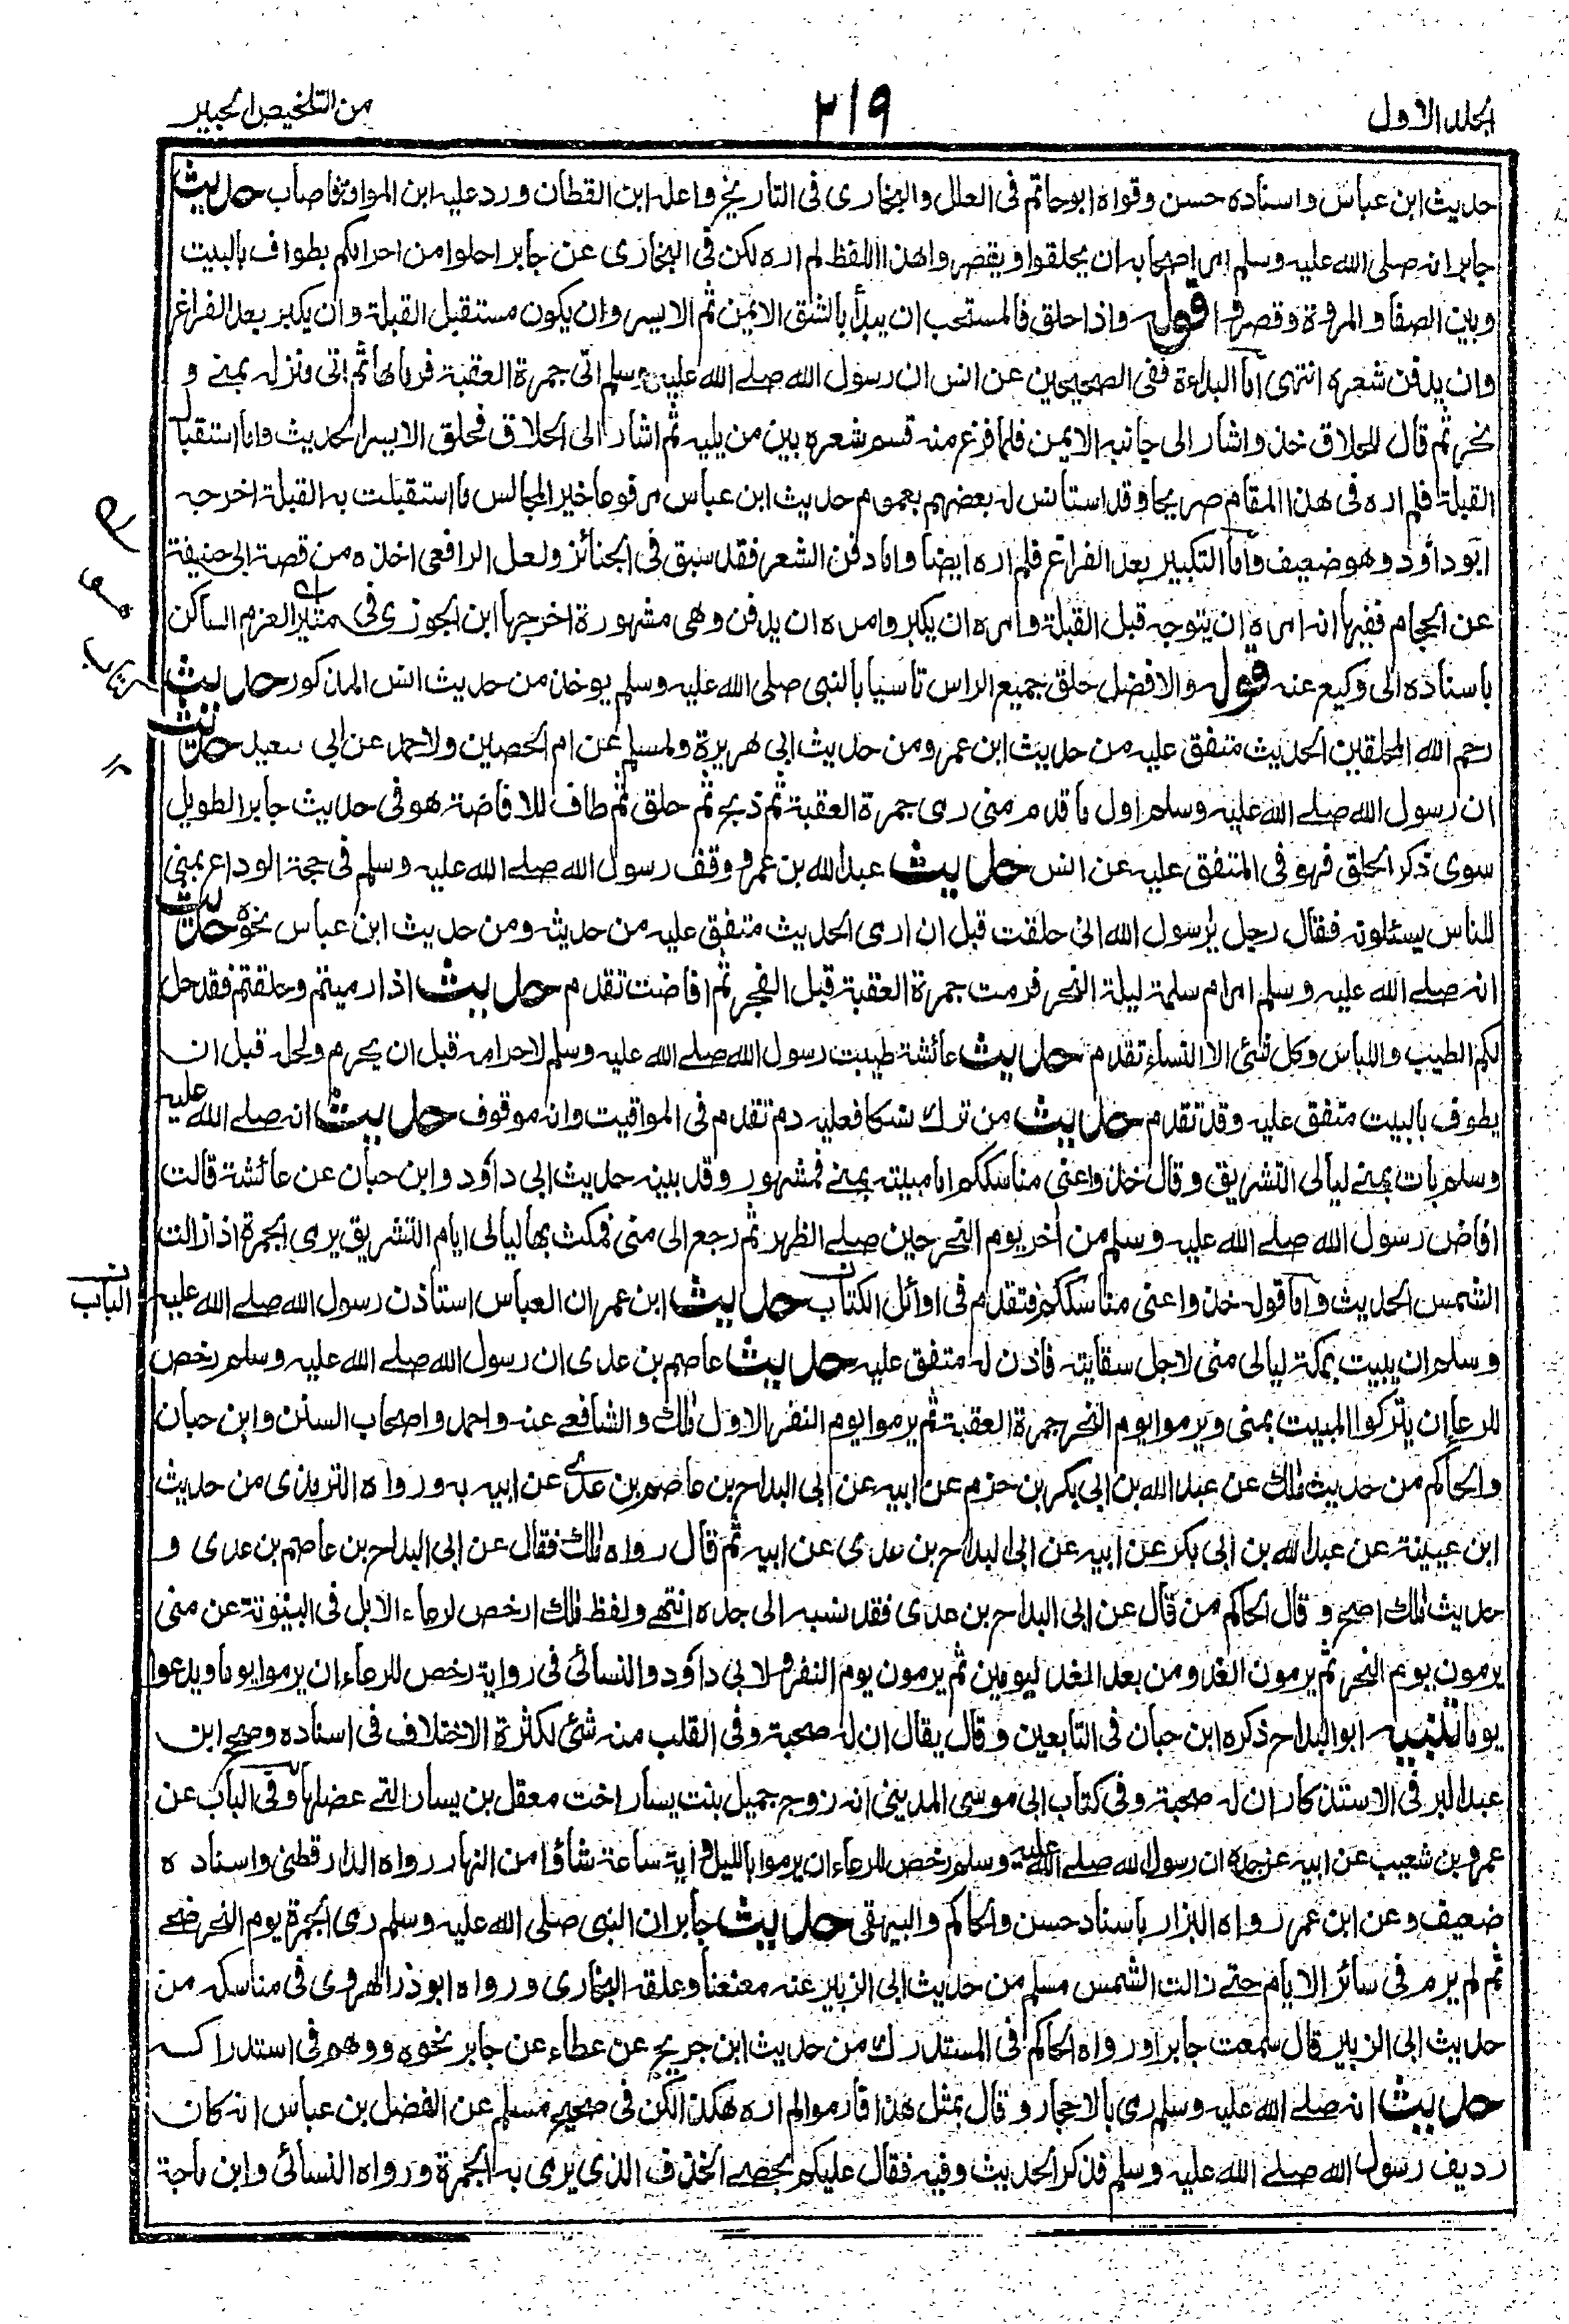 المجلد الاول
٢١٩
من التلخيص الحبير
حديث ابن عباس واسناده حسن وقواه ابو حاتم فى العلل والبخارى فى التاريخ واعله ابن القطان ورد عليه ابن المواق فاصاب حديث
جابر انه صلى الله عليه وسلم امر اصحابه ان يحلقوا او يقصروا هذا اللفظ لم اره لكن فى البخارى عن جابر احلوا من احرامكم بطواف بالبيت
وبين الصفا والمروة وقصروا قوله واذا حلق فالمستحب ان يبدأ بالشق الايمن ثم الايسر وان يكون مستقبل القبلة وان يكبر بعد الفراغ
وان يدفن شعره انتهى اما البداءة ففى الصحيحين عن انس ان رسول الله صلے الله عليه وسلم اتى جمرة العقبة فرماها ثم اتى منزله بمنے و
نحر ثم قال للحلاق خذ واشار الى جانبه الايمن فلما فرغ منه قسم شعره بين من يليه ثم اشار الى الحلاق فحلق الايسر الحديث واما استقبال
القبلة فلم اره فى هذا المقام صريحا وقد استانس له بعضهم بعموم حديث ابن عباس مرفوعا خير المجالس ما استقبلت به القبلة اخرجه
ابو داؤد وهو ضعيف واما التكبير بعد الفراغ فلم اره ايضا واما دفن الشعر فقد سبق فى الجنائز ولعل الرافعى اخذه من قصة ابى حنيفة
عن الحجام ففيها انه امره ان يتوجه قبل القبلة وامره ان يكبر وامره ان يدفن وهى مشهورة اخرجها ابن الجوزى فى مثير العزم الساكن
باسناده الى وكيع عنه قوله والافضل حلق جميع الراس تاسيا بالنبى صلى الله عليه وسلم يوخذ من حديث انس المذكور حديث
رحم الله المحلقين الحديث متفق عليه من حديث ابن عمر ومن حديث ابى هريرة ولمسلم عن ام الحصين ولاحمد عن ابى سعيد حديث
ان رسول الله صلے الله عليه وسلم اول ما قدم منى رمى جمرة العقبة ثم ذبح ثم حلق ثم طاف للافاضة هو فى حديث جابر الطويل
سوى ذكر الحلق فهو فى المتفق عليه عن انس حديث عبد الله بن عمرو وقف رسول الله صلے الله عليه وسلم فى حجة الوداع بمنى
للناس يسئلونه فقال رجل يا رسول الله انى حلقت قبل ان ارمى الحديث متفق عليه من حديثه ومن حديث ابن عباس نحوه حديث
انه صلے الله عليه وسلم امر ام سلمة ليلة النحر فرمت جمرة العقبة قبل الفجر ثم افاضت تقدم حديث اذا رميتم وحلقتم فقد حل
لكم الطيب واللباس وكل شئ الا النساء تقدم حديث عائشة طيبت رسول الله صلے الله عليه وسلم لاحرامه قبل ان يحرم ولحله قبل ان
يطوف بالبيت متفق عليه وقد تقدم حديث من ترك نسكا فعليه دم تقدم فى المواقيت وانه موقوف حديث انه صلے الله عليه
وسلم بات بمنے ليالى التشريق وقال خذوا عنى مناسككم اما مبيته بمنے فمشهور وقد بينه حديث ابى داؤد وابن حبان عن عائشة قالت
افاض رسول الله صلے الله عليه وسلم من اٰخر يوم النحر حين صلے الظهر ثم رجع الى منى فمكث بها ليالى ايام التشريق يرمى الجمرة اذا زالت
الشمس الحديث واما قوله خذوا عنى مناسككم فتقدم فى اوائل الكتاب حديث ابن عمر ان العباس استاذن رسول الله صلے الله عليه
الباب
وسلم ان يبيت بمكة ليالى منى لاجل سقايته فاذن له متفق عليه حديث عاصم بن عدى ان رسول الله صلے الله عليه وسلم رخص
للرعاء ان يتركوا المبيت بمنى ويرموا يوم النحر جمرة العقبة ثم يرموا يوم النفر الاول مٰلك والشافعے عنه واحمد واصحاب السنن وابن حبان
والحاكم من حديث مٰلك عن عبد الله بن ابى بكر بن حزم عن ابيه عن ابى البداح بن عاصم بن عدے عن ابيه به ورواه الترمذى من حديث
ابن عيينة عن عبد الله بن ابى بكر عن ابيه عن ابى البداح بن عدى عن ابيه ثم قال رواه مٰلك فقال عن ابى البداح بن عاصم بن عدى و
حديث مٰلك اصح وقال الحاكم من قال عن ابى البداح بن عدى فقد نسبه الى جده انتهے ولفظ مٰلك ارخص لرعاء الابل فى البيتوتة عن منى
يرمون يوم النحر ثم يرمون الغد ومن بعد الغد ليومين ثم يرمون يوم النفر ولابى داؤد والنسائى فى رواية رخص للرعاء ان يرموا يوما ويدعوا
يوما تنبيه ابو البداح ذكره ابن حبان فى التابعين وقال يقال ان له صحبة وفى القلب منه شئ لكثرة الاختلاف فى اسناده وصحح ابن
عبد البر فى الاستذكار ان له صحبة وفى كتاب ابى موسى المدينى انه زوج جميل بنت يسار اخت معقل بن يسار التے عضلها وفى الباب عن
عمرو بن شعيب عن ابيه عن جده ان رسول الله صلے الله عليه وسلم رخص للرعاء ان يرموا بالليل واية ساعة شاؤا من النهار رواه الدارقطنى واسناده
ضعيف وعن ابن عمر رواه البزار باسناد حسن والحاكم والبيهقى حديث جابر ان النبى صلى الله عليه وسلم رمى الجمرة يوم النحر ضحے
ثم لم يرم فى سائر الايام حتے زالت الشمس مسلم من حديث ابى الزبير عنه معنعنا وعلقه البخارى ورواه ابو ذر الهروى فى مناسكه من
حديث ابى الزبير قال سمعت جابرا ورواه الحاكم فى المستدرك من حديث ابن جريج عن عطاء عن جابر نحوه ووهم فى استدراكه
حديث انه صلے الله عليه وسلم رمى بالاحجار وقال بمثل هذا فارموا لم اره هكذا لكن فى صحيح مسلم عن الفضل بن عباس انه كان
رديف رسول الله صلے الله عليه وسلم فذكر الحديث وفيه فقال عليكم بحصے الخذف الذى يرمى به الجمرة ورواه النسائى وابن ماجة